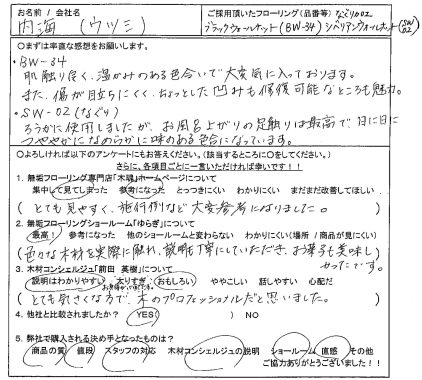 お名前 / 会社名
内海 (ウツミ)
ご採用頂いたフローリング (品番等) なぐり02
ブラックウォールナット(BW-34) シベリアンウォールナット(SW02)
○まずは率直な感想をお願いします。
・BW-34
肌触り良く、温かみのある色合いで大変気に入っております。
また、傷が目立ちにくく、ちょっとした凹みも修復可能なところも魅力。
・SW-02(なぐり)
ろうかに使用しましたが、お風呂上がりの足触りは最高で日に日に
つややかになめらかに味のある色合になっています。
○よろしければ以下のアンケートにもお答えください。(該当するところに○をしてください。)
さらに、各項目ごとに一言いただければ幸いです!!
1. 無垢フローリング専門店「木魂」ホームページについて
集中して見てしまった 参考になった とっつきにくい わかりにくい まだまだ改善してほしい
(とても見やすく、施行例など大変参考になりました。)
2. 無垢フローリングショールーム「ゆらぎ」について
最高! 参考になった 他のショールームと変わらない わかりにくい(場所 / 商品が見にくい)
(色々な木材を実際に触れ、説明も丁寧にしていただき、お菓子も美味し
かったです。)
3. 木材コンシェルジュ「前田 英樹」について
説明はわかりやすい 太りすぎ おもしろい ややこしい 話しやすい 心配だ
(とても気さくな方で、木のプロフェッショナルだと思いました。)
4. 他社と比較されましたか? YES( ) NO
5. 弊社で購入される決め手となったものは?
商品の質 値段 スタッフの対応 木材コンシェルジュの説明 ショールーム 直感 その他
ご協力ありがとうございました!